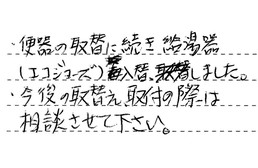 ・便器の取替に続き給湯器
(エコジョーズ)入替、取替しました。
・今後の取替え取付の際は
相談させて下さい。